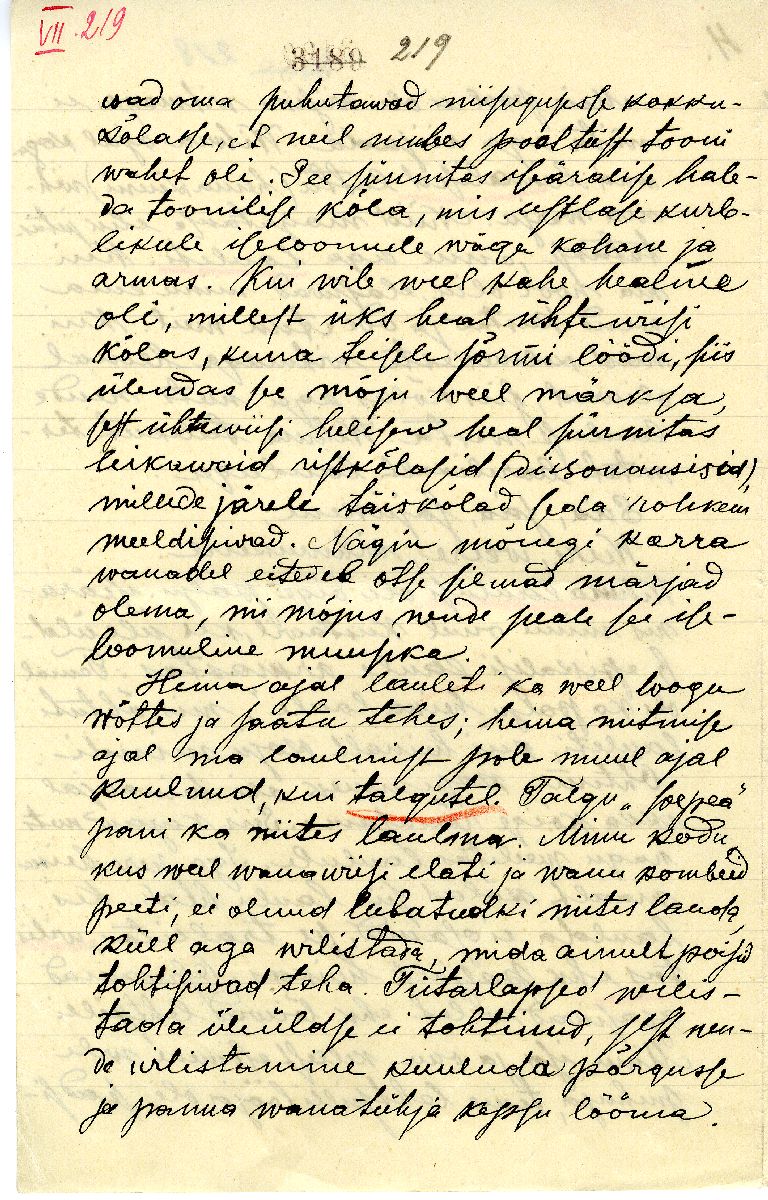 VII. 219
3189 219
wad oma puhutawad niisugusesse kokku-
kõlasse, et neil umbes pooltéist tooni
wahet oli. See sünnitas isäralise hale-
da toonilise kõla, mis eestlase kurb-
likule iseloomule wäga kohane ja
armas. Kui wile weel kahe healine
oli, millest üks heal ühtewiisi
kõlas, kuna teisele sõrmi löödi, siis
ülendas se mõju weel märksa,
sest ühtewiisi helisew heal sünnitas
leikawaid ristkõlasid (dissonansisid),
millede järele täiskõlad seda rohkem
meeldisiwad. Nägin mõnegi korra
wanadel eitedel otse silmad märjad
olema, nii mõjus nende peale see ise-
loomuline muusika.
Heina ajal lauleti ka weel loogu
wõttes ja saatu tehes; heina niitmise
ajal ma laulmist pole muul ajal
kuulnud, kui talgutel. Talgu „sepea"
pani ka niites laulma. Minu kodu,
kus weel wanawiisi elati ja wanu kombeid
peeti, ei olnud lubatudki niites laulda,
küll aga wilistada, mida ainult poisid
tohtisiwad teha. Tütarlapsed wilis-
tada üleüldse ei tohtinud, sest nen-
de wilistamine kuuluda põrgusse
ja panna wanatühja kepsu lööma.